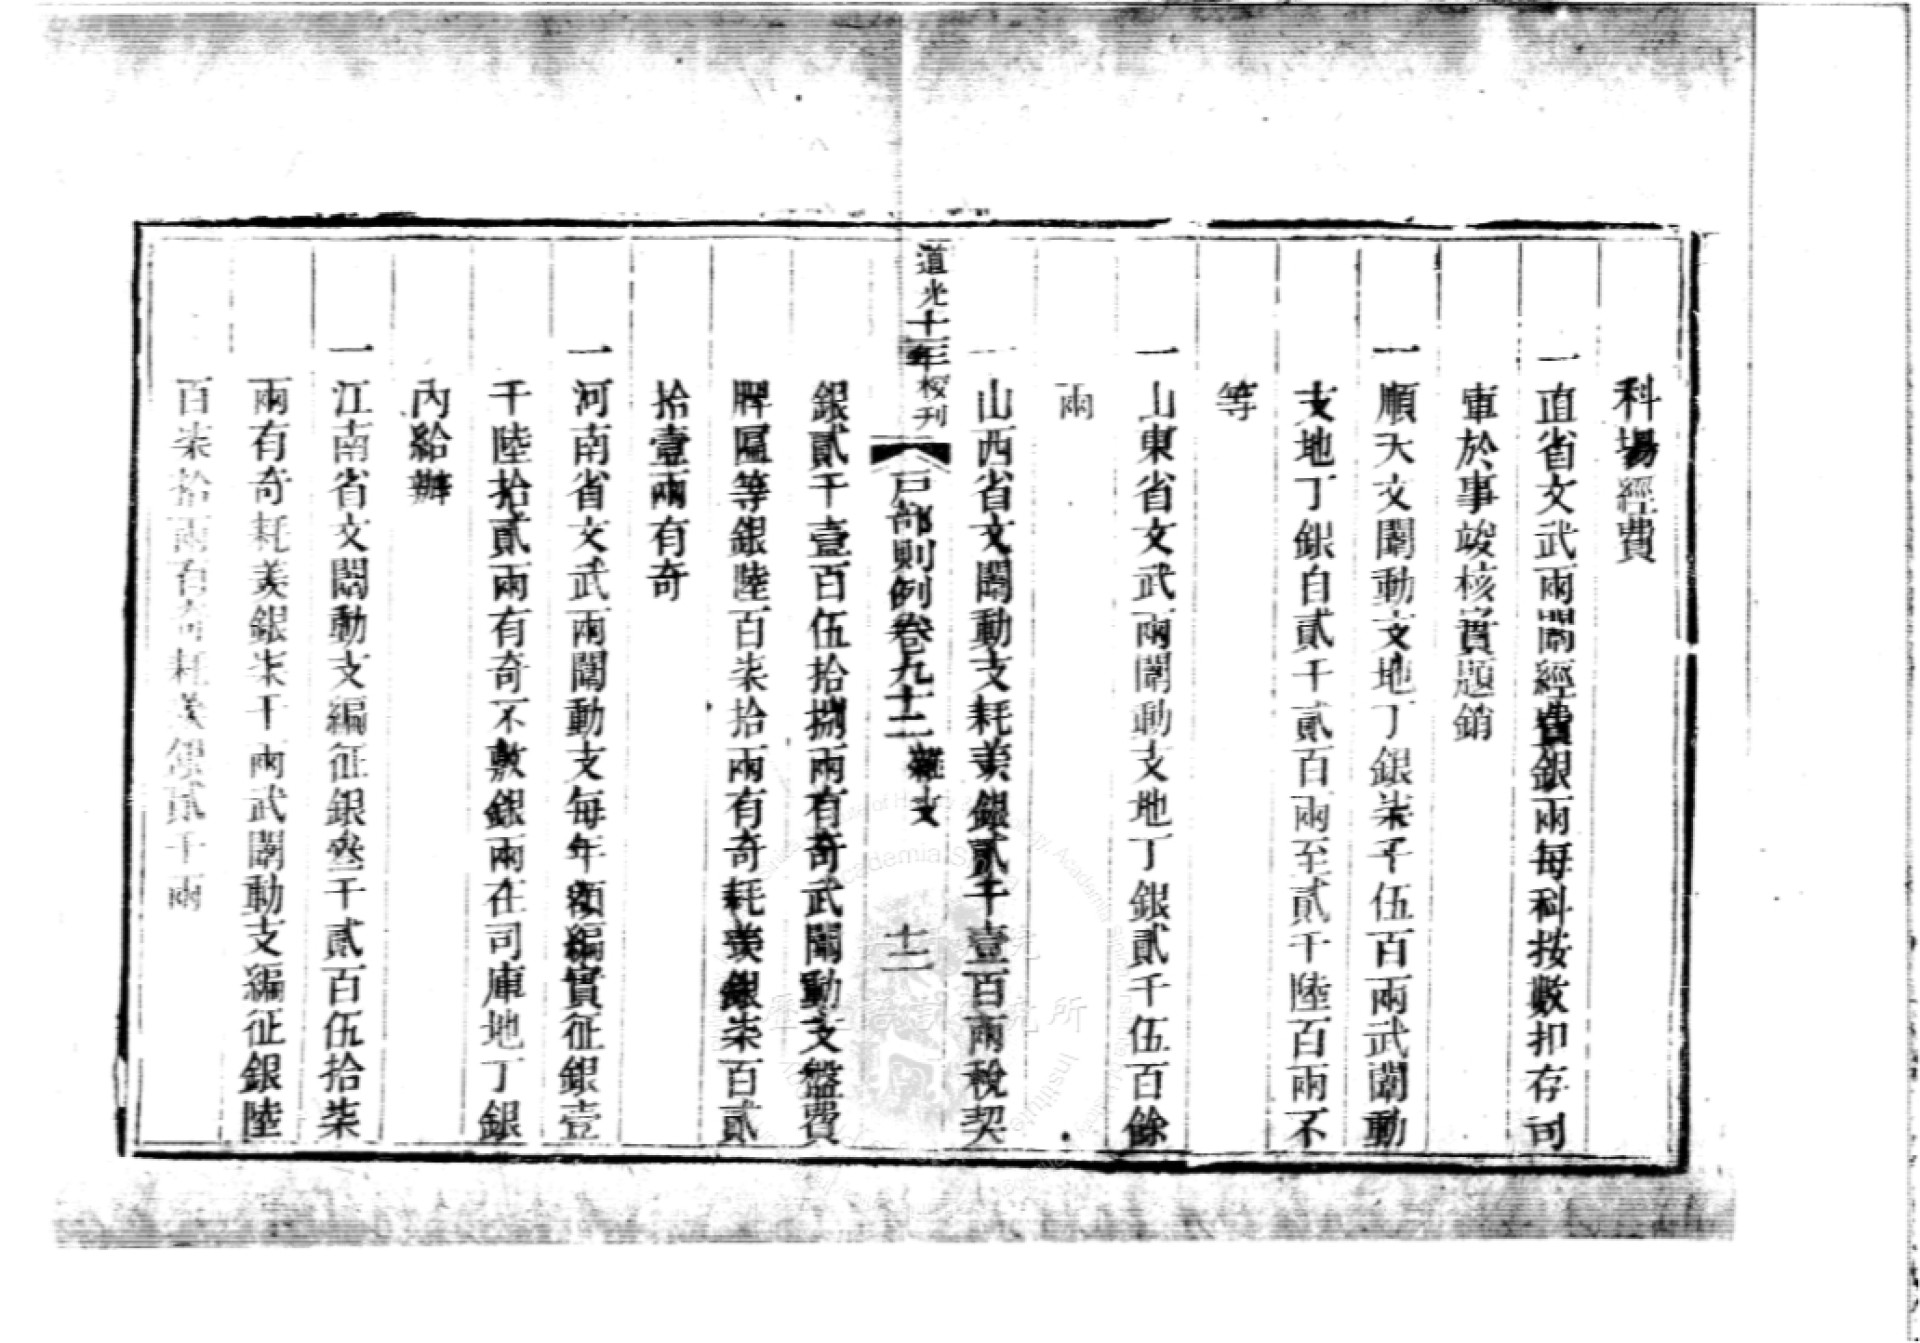 科場經費
一直省文武兩闈經費銀兩每科按數扣存司
庫於事竣核實題銷
一順天文闈動支地丁銀柒千伍百兩武闈動
支地丁銀自貳千貳百兩至貳千陸百兩不
等
一山東省文武兩闈動支地丁銀貳千伍百餘
兩
一山西省文闈動支耗羨銀貳千壹百兩稅契
道光十一年校刊
戶部則例卷九十二 雜支 十二
銀貳千壹百伍拾捌兩有奇武闈動支盤費
牌匾等銀陸百柒拾兩有奇耗羨銀柒百貳
拾壹兩有奇
一河南省文武兩闈動支每年額編實征銀壹
千陸拾貳兩有奇不敷銀兩在司庫地丁銀
內給辦
一江南省文闈動支編征銀叁千貳百伍拾柒
兩有奇耗羨銀柒千兩武闈動支編征銀陸
百柒拾兩有奇耗羨銀貳千兩